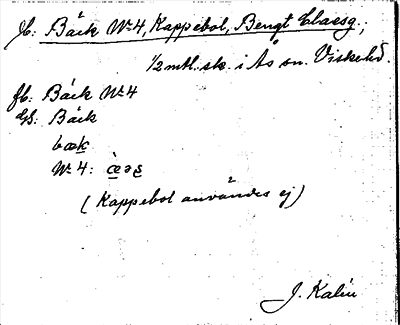 Jb: Bäck Nr 4, Kappebol, Bengt Claessg.;
1/2 mtl. sk. i Ås sn. Viske hd.
fb: Bäck Nr 4
Us: Bäck
bæk
Nr 4:
(Kappebol användes ej)
J. Kalén